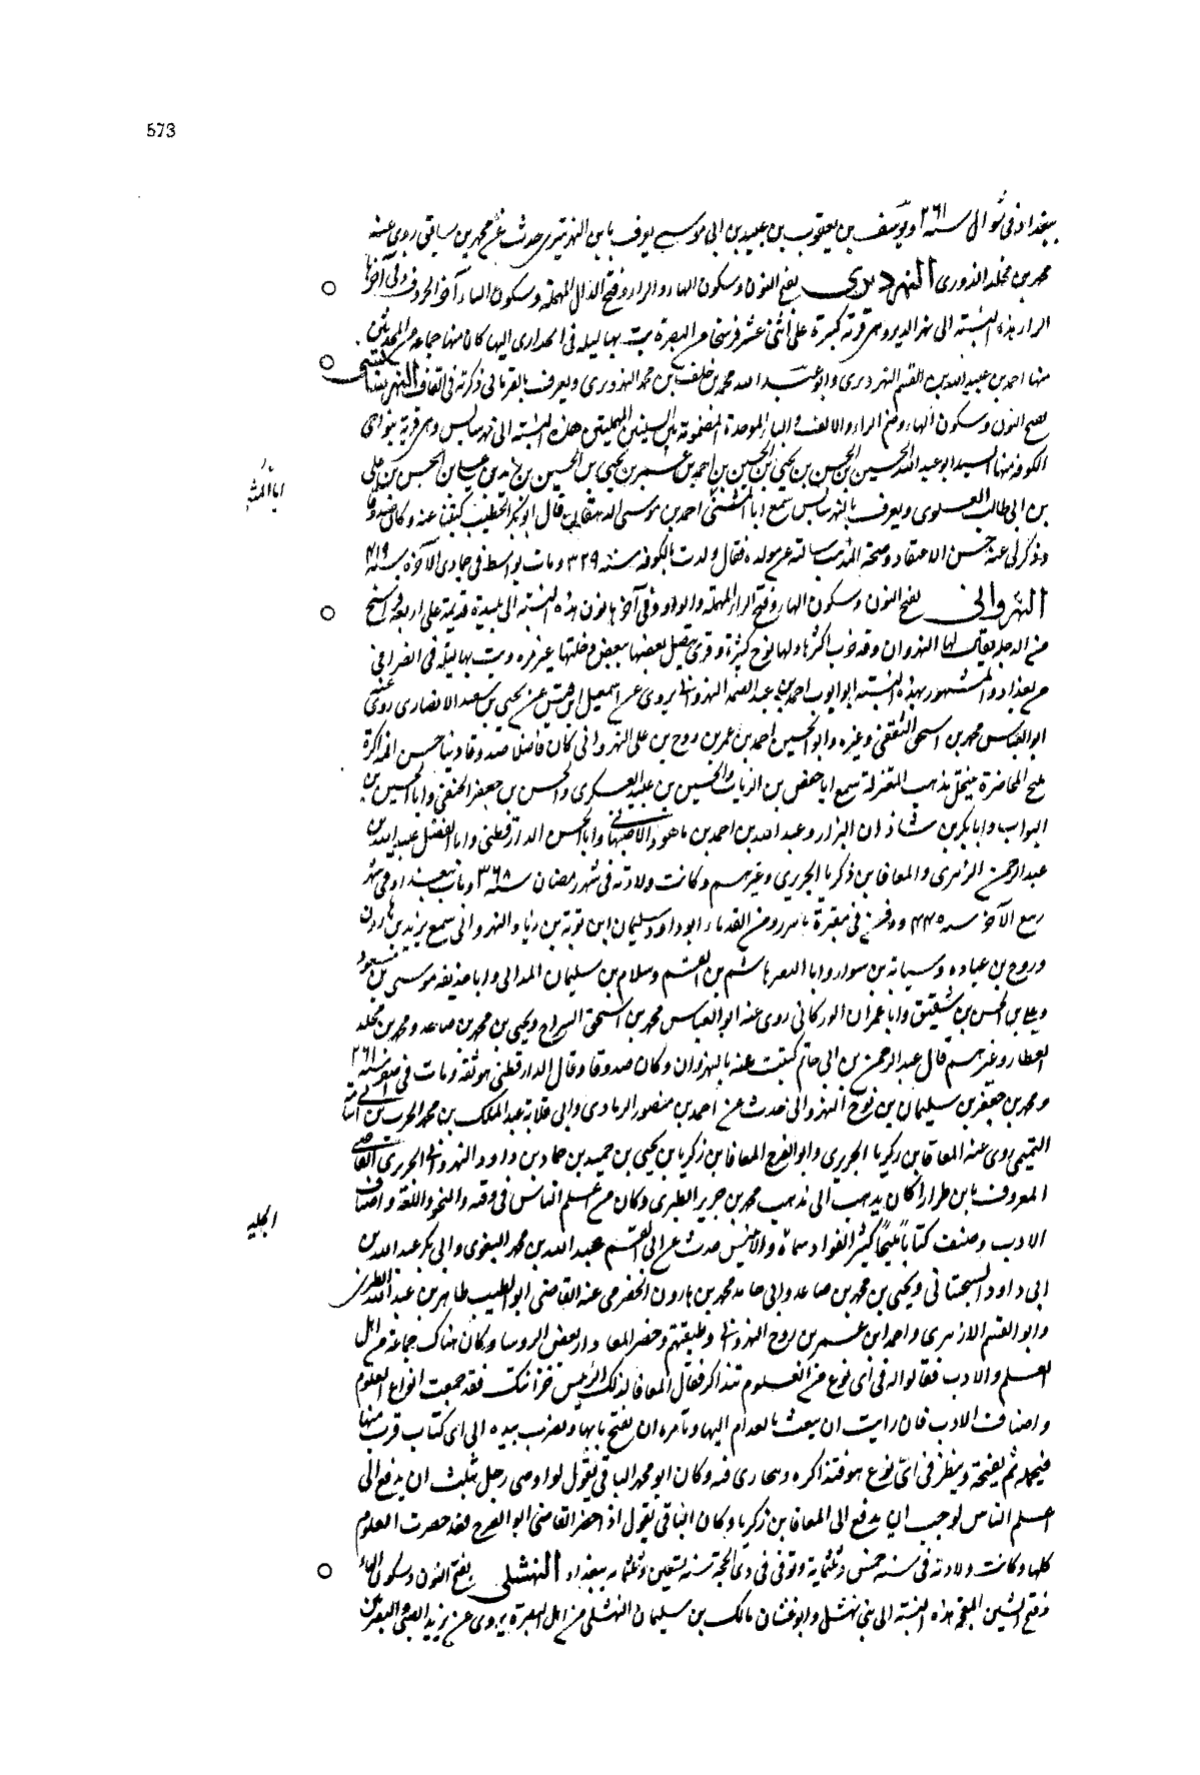 573
ببغداد في شوال سنة ٢٦١ ويوسف بن يعقوب بن عبيد بن ابي موسى يعرف بابن النهرتيري حدث عن محمد بن سابق روى عنه
محمد بن مخلد الدوري النهرديري بفتح النون وسكون الهاء والراء وفتح الدال المهملة وسكون الياء آخر الحروف وفي آخرها
الراء هذه النسبة الى نهر الدير وهي قرية كبيرة على اثني عشر فرسخا من البصرة بت بها ليلة في انحداري اليها كان منها جماعة من المحدثين
منها احمد بن عبيد الله بن القسم النهرديري وابو عبد الله محمد بن خلف بن محمد النهرديري ويعرف ذكرته في القاف النهرسابسي
بفتح النون وسكون الهاء وضم الراء والالف والباء الموحدة المضمومة بين السينين المهملتين هذه النسبة الى نهر سابس وهي قرية بنواحي
الكوفة منها السيد ابو عبد الله الحسين بن الحسن بن يحيى بن الحسين بن احمد بن عمر بن يحيى بن الحسين بن زيد بن علي بن الحسين بن علي
ابا المثنى
بن ابي طالب العلوي ويعرف بالنهرسابسي سمع ابا المثنى احمد بن موسى الدهقان قال ابو بكر الخطيب كتبت عنه وكان صدوقا
وذكر لي عنه حسن الاعتقاد وصحة المذهب سالته عن مولده فقال ولدت بالكوفة سنة ٣٢٩ ومات بواسط في جمادى الآخرة سنة ٤١٩
النهرواني بفتح النون وسكون الهاء وفتح الراء المهملة والواو وفي آخرها نون هذه النسبة الى بليدة قديمة على اربعة فراسخ
من الدجلة يقال لها النهروان وقد خرب اكثرها ولها نواح كثيرة وقرى يتصل بعضها ببعض دخلتها غير مرة وبت بها ليلة في انصرافي
من بغداد والمشهور بهذه النسبة ابو ايوب احمد بن عبد الصمد النهرواني يروي عن اسمعيل بن قيس عن يحيى بن سعيد الانصاري روى عنه
ابو العباس محمد بن اسحق الثقفي وغيره وابو الحسين احمد بن عمر بن روح بن علي النهرواني كان فاضلا صدوقا دينا حسن المذاكرة
مليح المحاضرة ينتحل مذهب المعتزلة سمع ابا حفص بن الزيات والحسين بن عبيد العسكري والحسن بن جعفر وابا الحسين بن
البواب وابا بكر بن شاذان البزار وعبد الله بن احمد بن ماهود الاصبهاني وابا الحسن الدارقطني وابا الفضل عبيد الله بن
عبد الرحمن الزهري والمعافا بن زكريا الجريري وغيرهم وكانت ولادته في شهر رمضان سنة ٣٦٨ ومات ببغداد في شهر
ربيع الآخر سنة ٤٤٥ ودفن في مقبرة ومن القدماء ابو داود سليمان ابن توبة بن زياد النهرواني سمع يزيد بن هارون
وروح بن عباده وسبابة بن سوار وابا النصر هاشم بن القسم وسلام بن سليمان المدايني وابا حذيفة موسى بن مسعود
وعلي بن الحسن بن شقيق وابا عمران الوركاني روى عنه ابو العباس محمد بن اسحق السراج ويحيى بن محمد بن صاعد ومحمد بن مخلد
العطار وغيرهم قال عبد الرحمن بن ابي حاتم كتبت عنه بالنهروان وكان صدوقا وقال الدارقطني هو ثقة ومات في صفر سنة ٢٦١
ومحمد بن جعفر بن سليمان بن نوح النهرواني حدث عن احمد بن منصور الرمادي وابي قلابة عبد الملك بن محمد الحرث بن ابي اسامة
التميمي روى عنه المعافا بن زكريا الجريري وابو الفرج المعافا بن زكريا بن يحيى بن حميد بن حماد بن داود النهرواني الجريري القاضي
المعروف بابن طرارا كان يذهب الى مذهب محمد بن جرير الطبري وكان من اعلم الناس في وقته والنحو واللغة واصناف
الجليس
الادب وصنف كتابا مليحا كثير الفوائد سماه والانيس حدث عن ابي القسم عبد الله بن محمد البغوي وابي بكر عبد الله بن
ابي داود السجستاني ويحيى بن محمد بن صاعد وابي حامد محمد بن هارون الحضرمي عنه القاضي ابو الطيب طاهر بن عبد الله الطبري
وابو القسم الازهري واحمد ابن عمر بن روح النهرواني وطبقتهم وحضر المعافا دار بعض الروسا وكان هناك جماعة من اهل
العلم والادب فقالوا له في اي نوع من العلوم نتذاكر فقال المعافا لذلك الرئيس خزانتك فقد جمعت انواع العلوم
واصناف الادب فان رايت ان تبعث بالغلام اليها وتامره ان يفتح بابها ويضرب بيده الى اي كتاب قرب منها
فيحمله ثم يفتحه وينظر في اي نوع هو فنتذاكره ونتجارى فيه وكان ابو محمد الباقي يقول لو اوصى رجل بثلث ان يدفع الى
اعلم الناس لوجب ان يدفع الى المعافا بن زكريا وكان الباقي يقول اذا حضر القاضي ابو الفرج فقد حضرت العلوم
كلها وكانت ولادته في سنة خمس وثلثمائة وتوفي في ذي الحجة سنة تسعين وثلثمائة ببغداد النهشلي بفتح النون وسكون الهاء
وفتح الشين المعجمة هذه النسبة الى بني نهشل وابو غسان مالك بن سليمان النهشلي من اهل البصرة يروي عن يزيد الضبي والبصريين